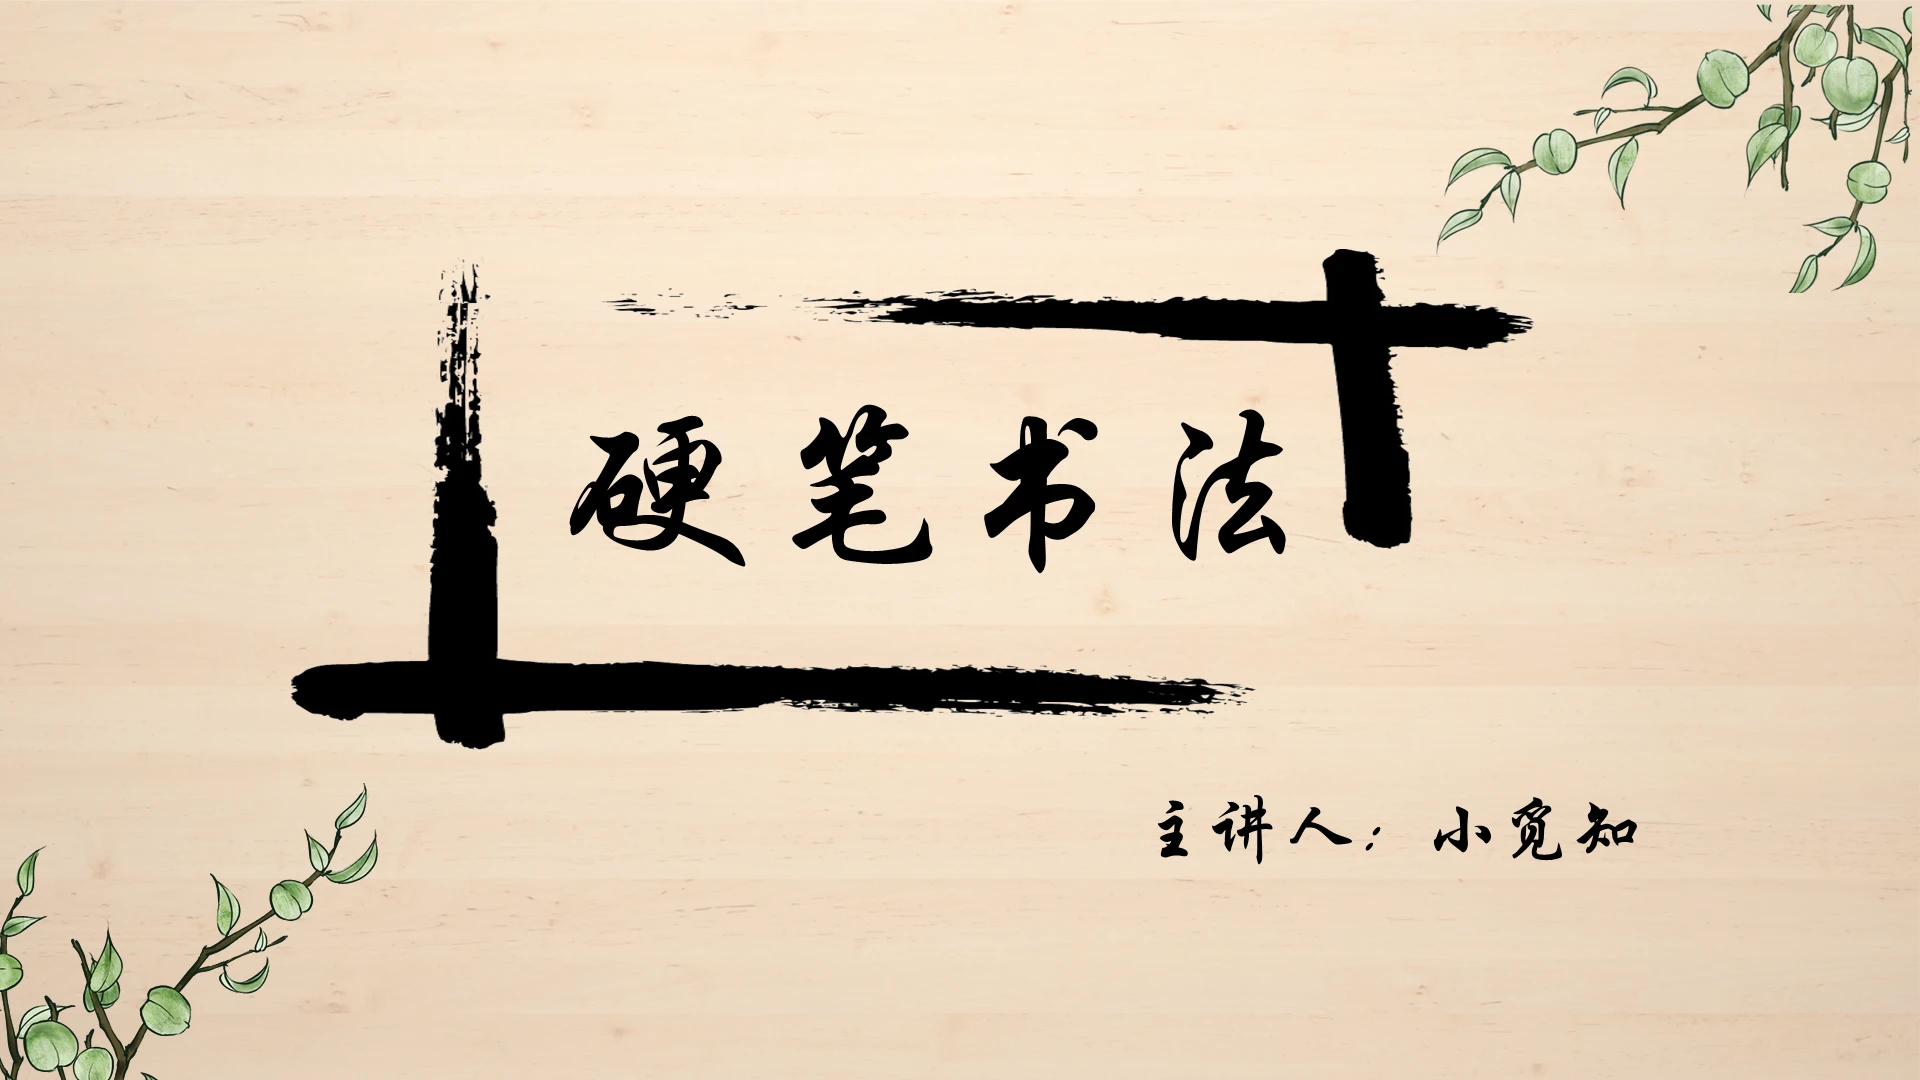 硬笔书法
主讲人：小觅知